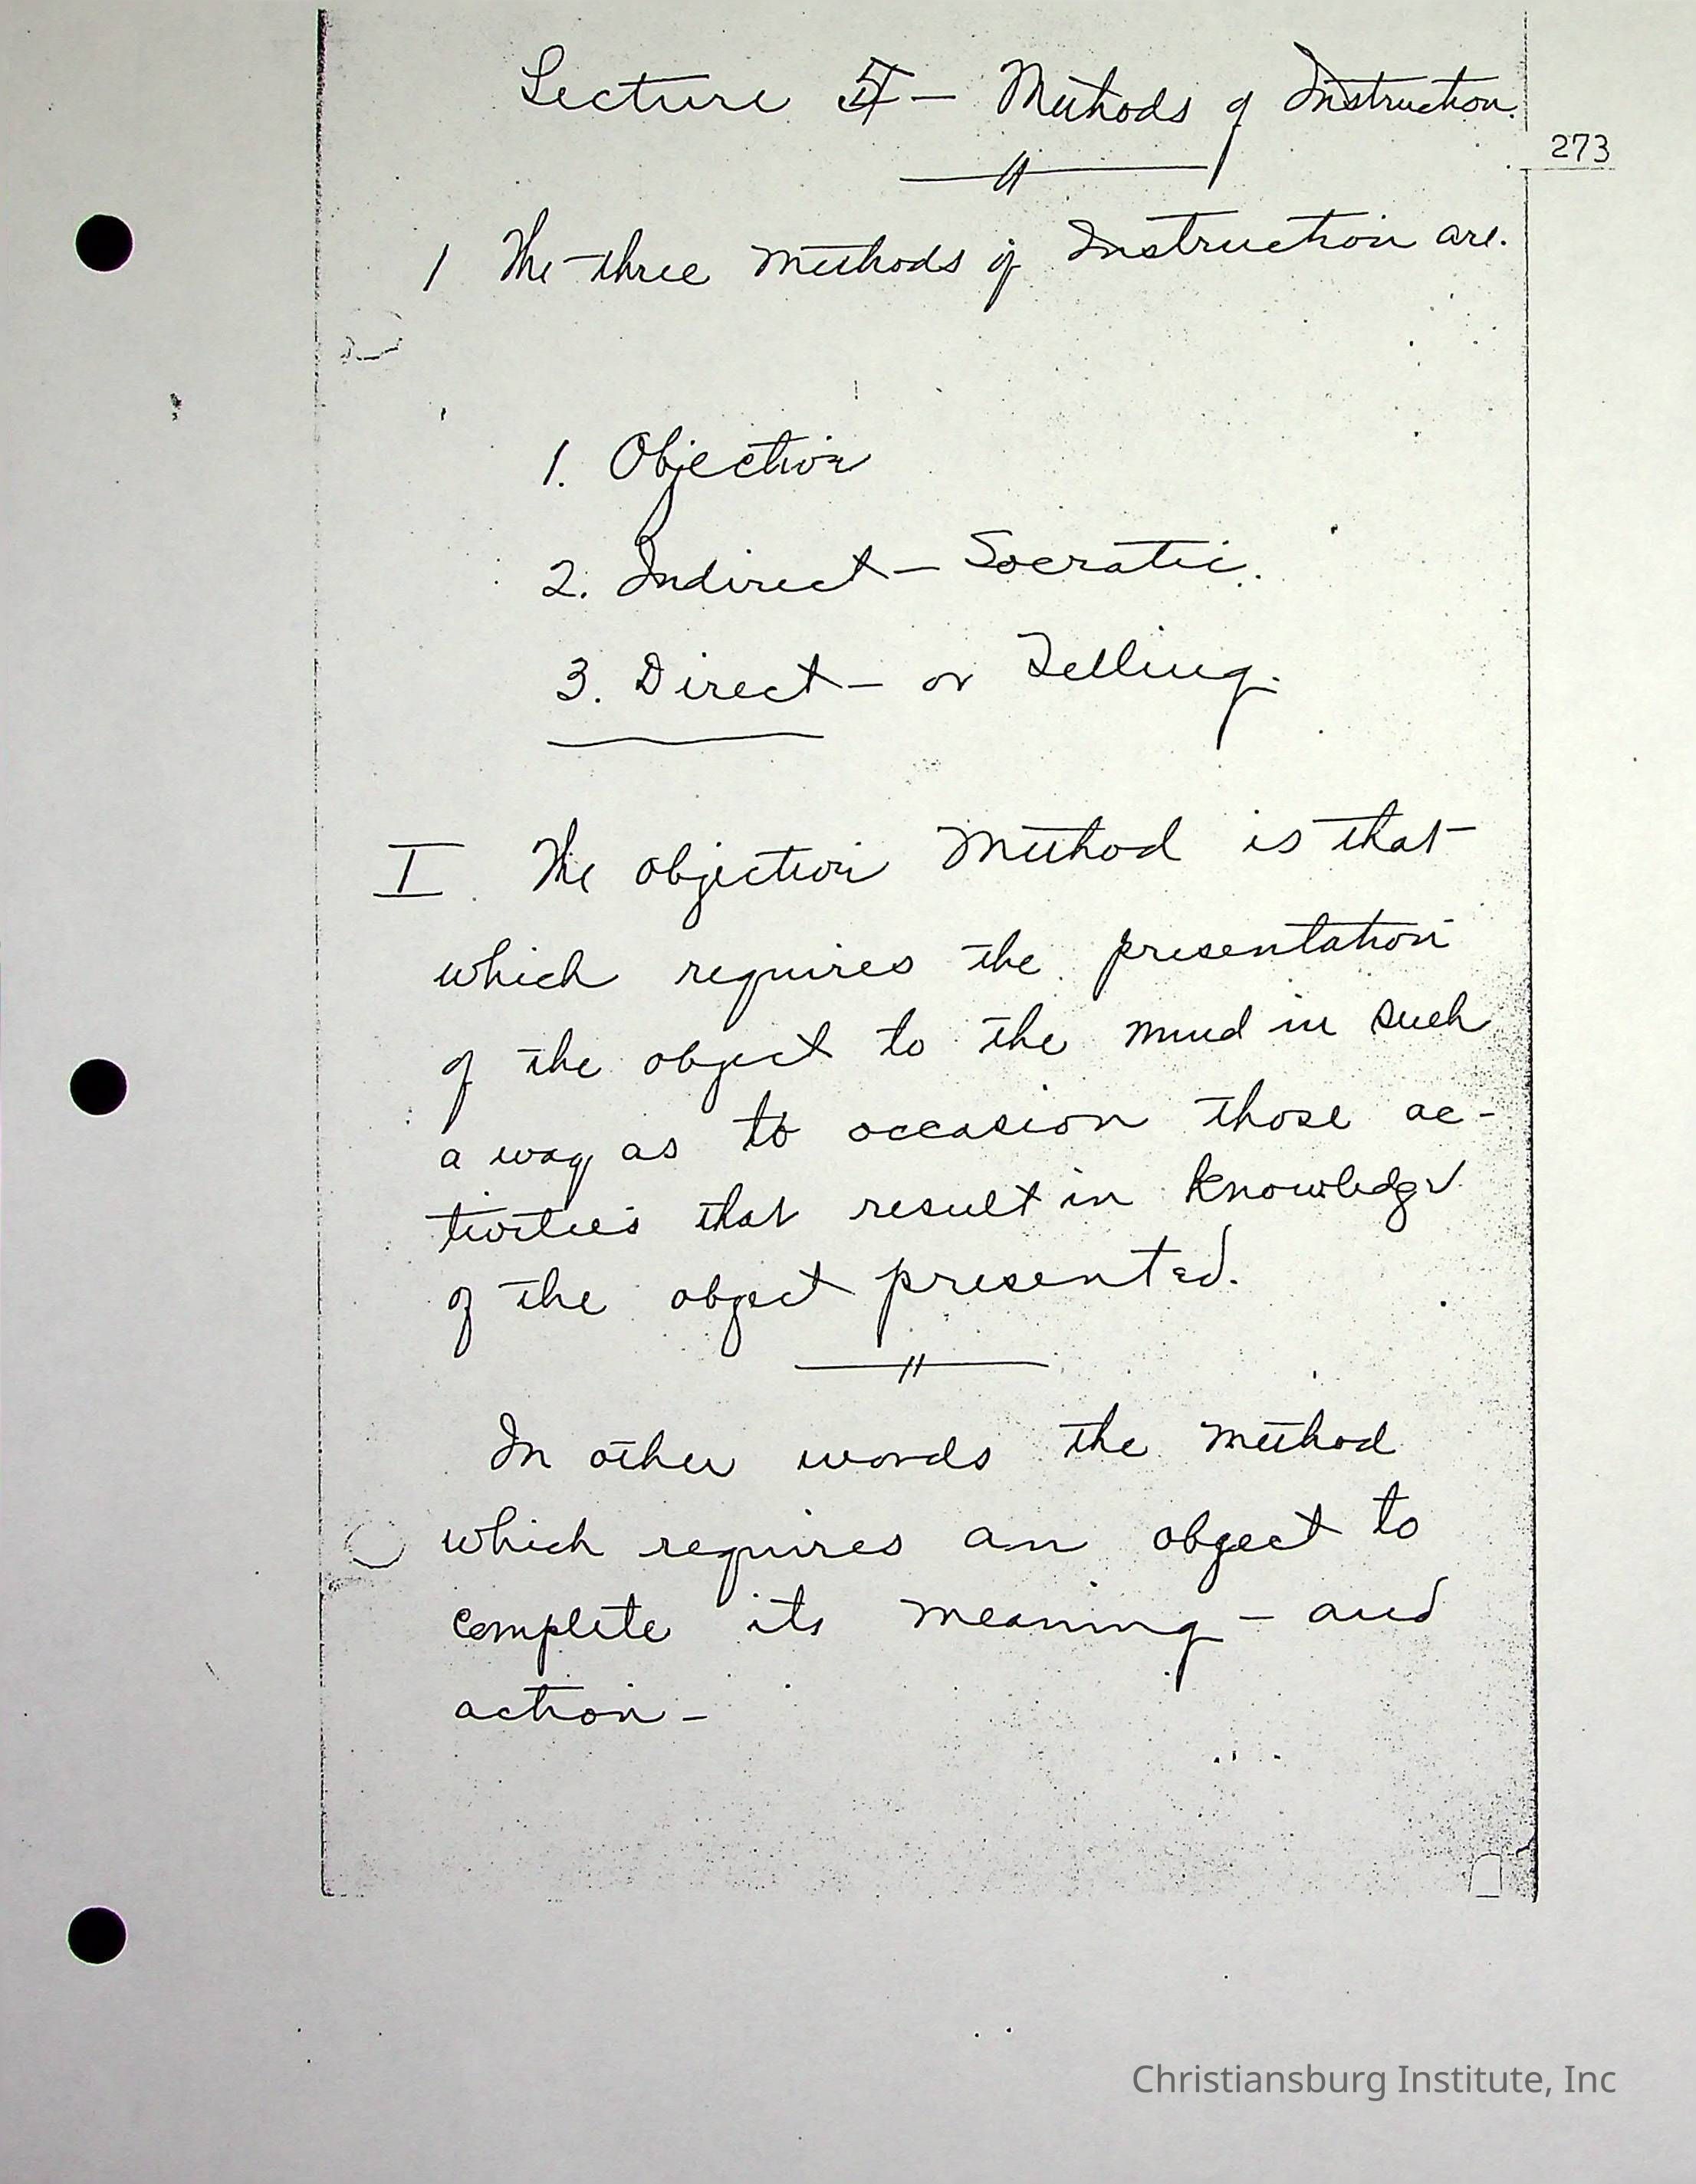 Lecture 5 — Methods of Instruction.
273
1 The three methods of Instruction are.
1. Objective
2. Indirect — Socratic.
3. Direct — or Telling.
I. The objective method is that
which requires the presentation
of the object to the mind in such
a way as to occasion those ac-
tivities that result in knowledge
of the object presented.
In other words the method
which requires an object to
complete its meaning — and
action —
Christiansburg Institute, Inc